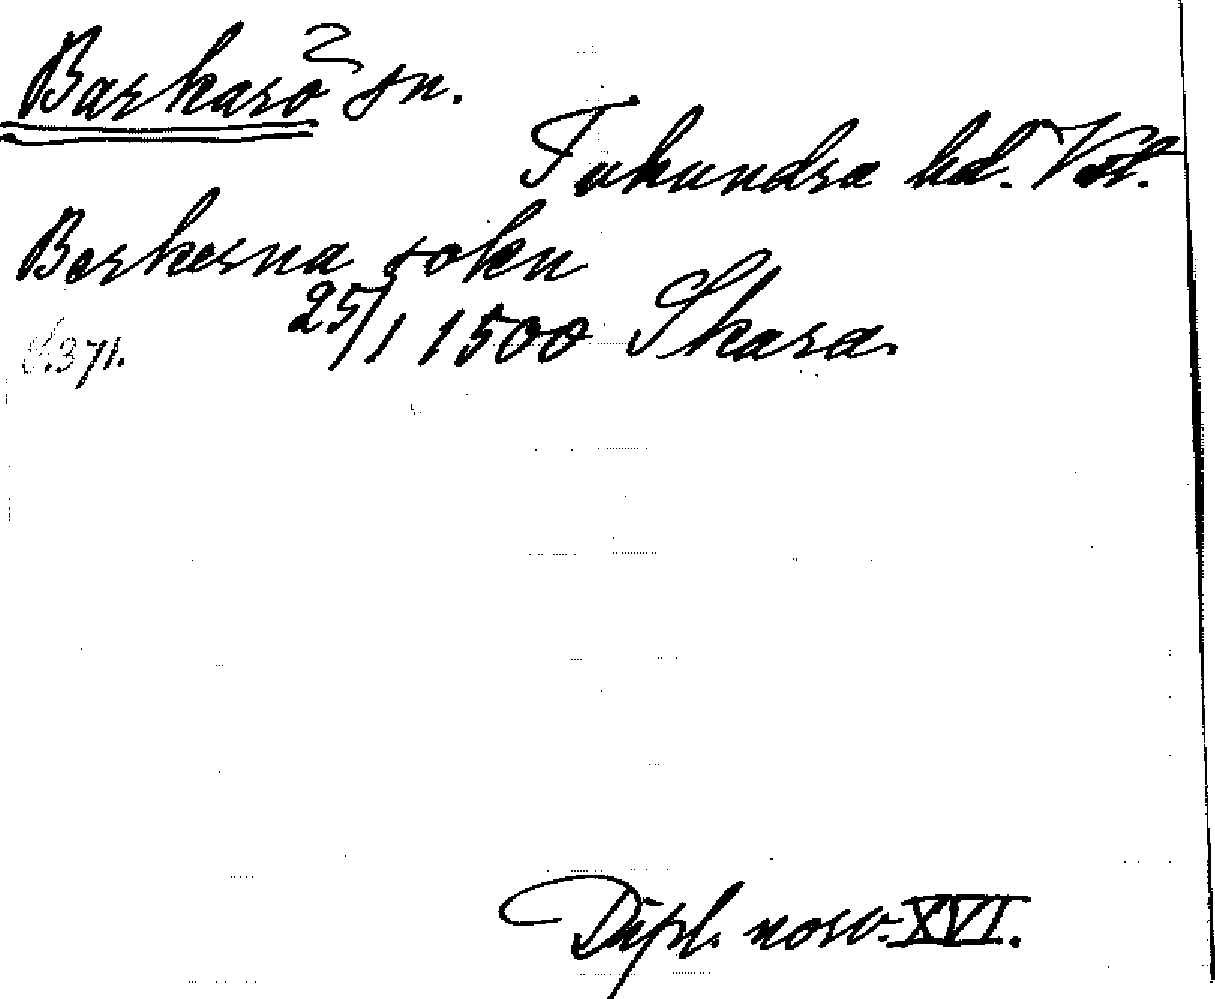 Barkarö sn.
Tuhundra hd. Vstl.
Berkerna sokn
25/1 1500 Skara.
s. 371.
Dipl. norv. XVI.